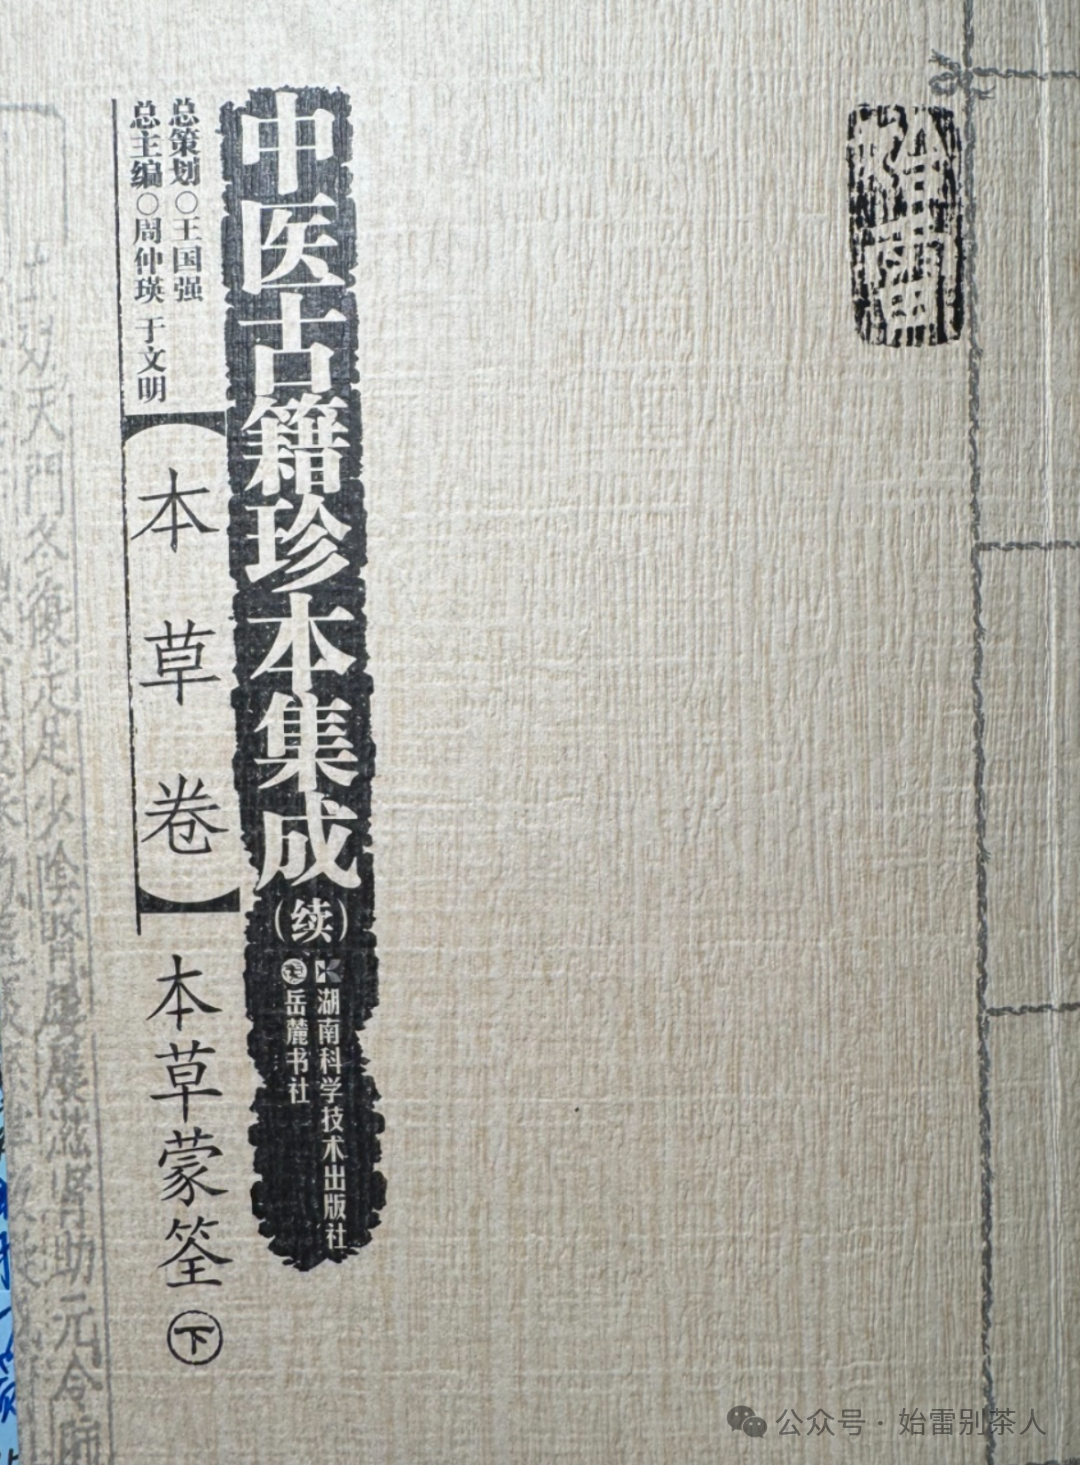 中医古籍珍本集成
(续)
湖南科学技术出版社
岳麓书社
总策划○王国强
总主编○周仲瑛 于文明
【本草卷】
本草蒙筌
下
天門冬復走足少陰腎屢屢滋腎助元令
公众号·始雷别茶人